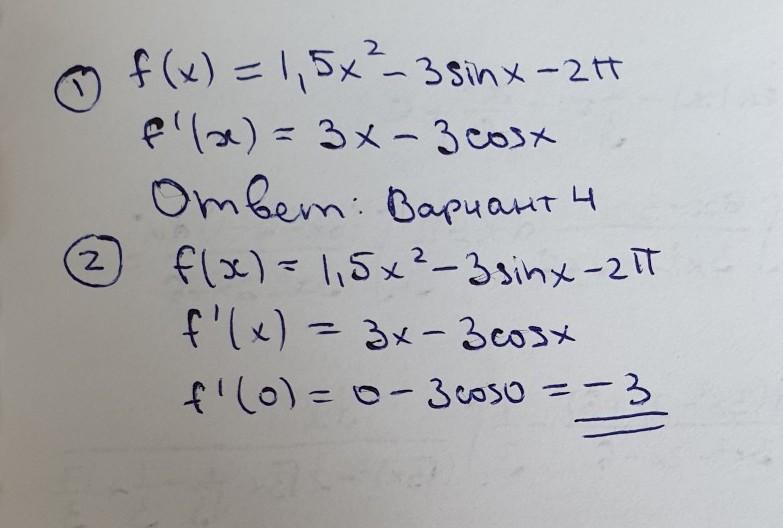 ① f(x) = 1,5x² - 3sinx - 2π
f'(x) = 3x - 3cosx
Ответ: Вариант 4
② f(x) = 1,5x² - 3sinx - 2π
f'(x) = 3x - 3cosx
f'(0) = 0 - 3cos0 = -3